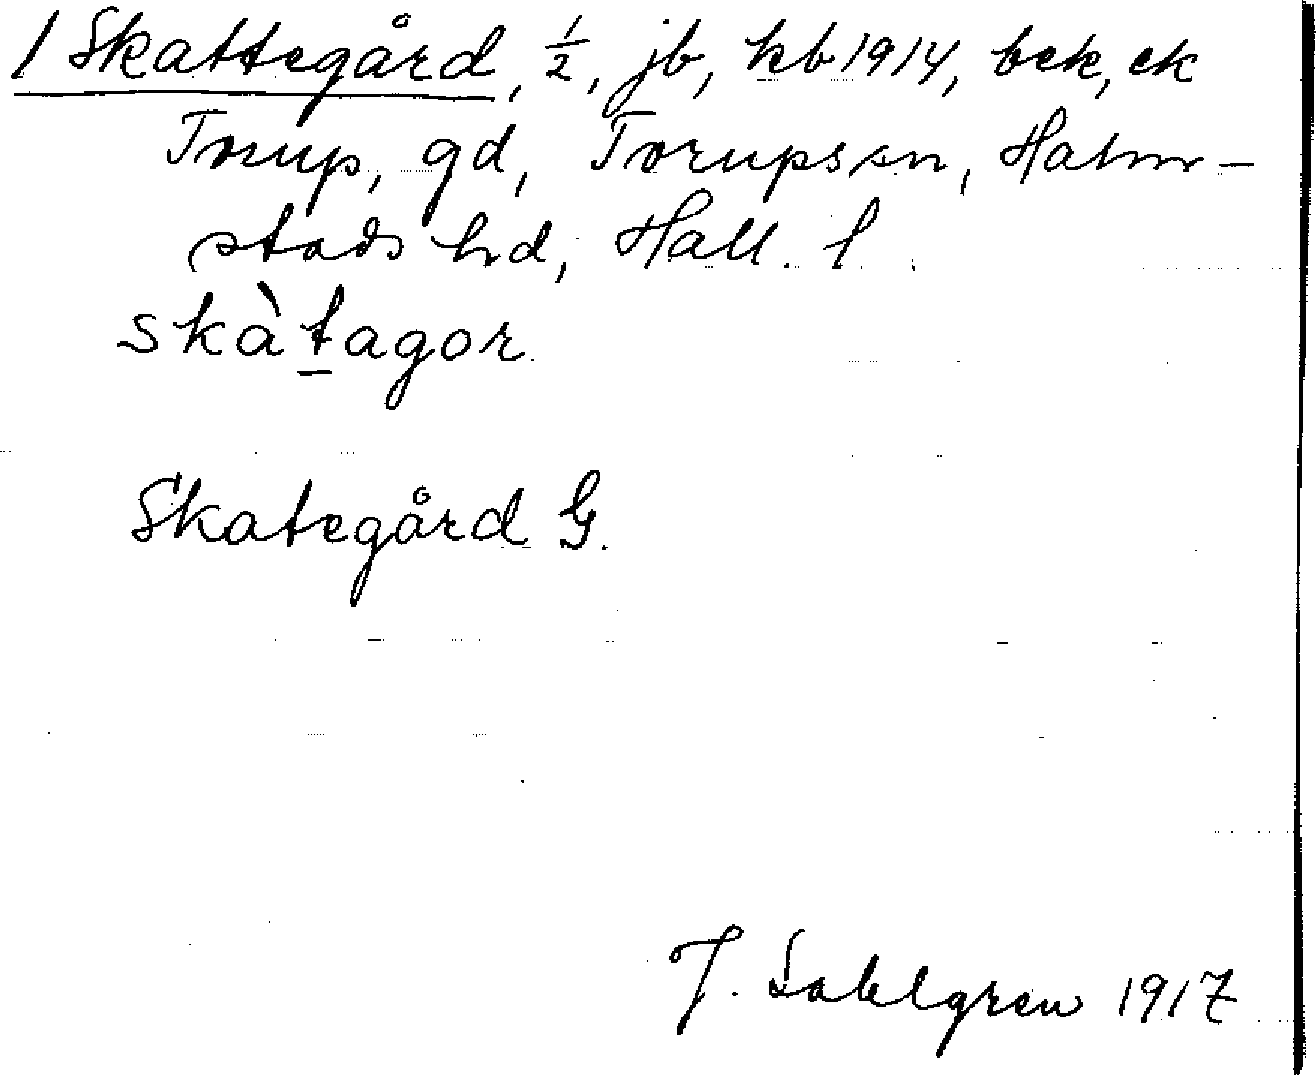 / Skattegård, ½, jb, kb 1914, bek, ek
Torup, gd, Torups sn, Halm-
stads hd, Hall. l.
skàt̲agor.
Skategård G.
J. Sahlgren 1917